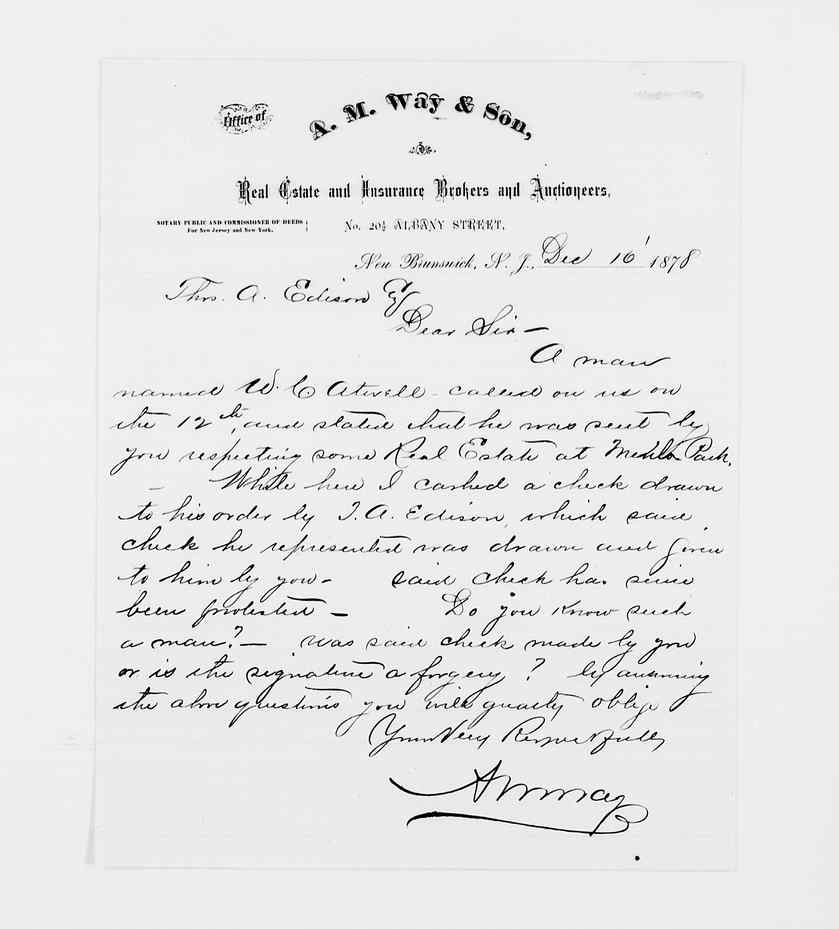 Office of
A. M. Way & Son,
Real Estate and Insurance Brokers and Auctioneers,
NOTARY PUBLIC AND COMMISSIONER OF DEEDS
For New Jersey and New York.
No. 20½ ALBANY STREET,
New Brunswick, N. J., Dec 16 1878
Thos. A. Edison Esq
Dear Sir —
A man
named W. C Atwell - called on us on
the 12th, and stated that he was sent by
you respecting some Real Estate at Menlo Park.
— While here I cashed a check drawn
to his order by T. A. Edison, which said
check he represented was drawn and given
to him by you - said check has since
been protested — Do you know such
a man? — was said check made by you
or is the signature a forgery? by answering
the above questions you will greatly oblige
Yours Very Respectfully
A M Way